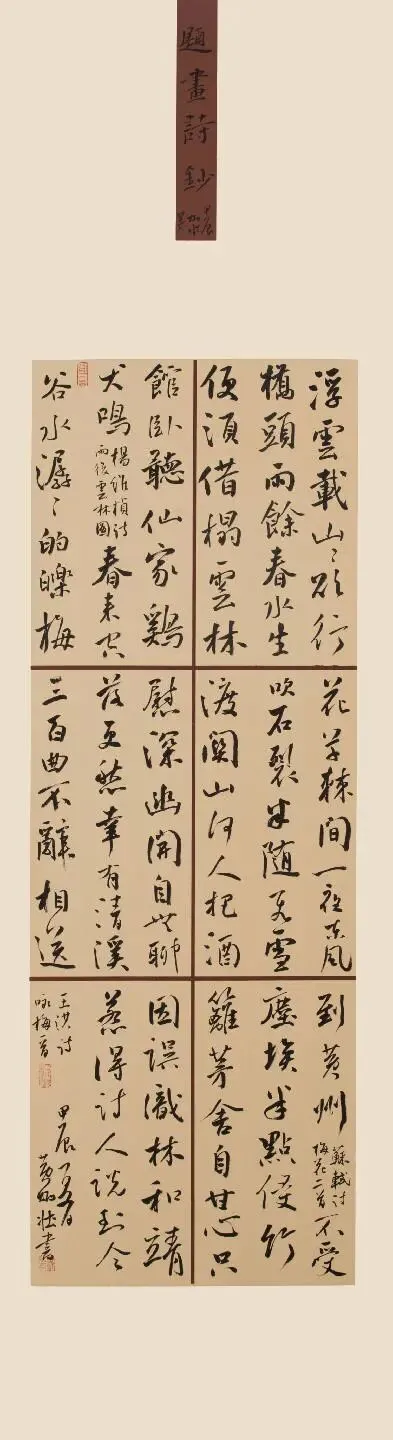 題畫詩鈔
浮雲載山山欲行
橋頭雨餘春水生
便須借榻雲林
館臥聽仙家雞
犬鳴 楊維楨詩
雨後雲林圖 春來空
谷水潺潺的皪梅
花草棘間一夜東風
吹石裂半隨飛雪
渡關山何人把酒
慰深幽開自無聊
落更愁幸有清溪
三百曲不辭相送
到黃州 蘇軾詩
梅花二首 不受
塵埃半點侵竹
籬茅舍自甘心只
因誤識林和靖
惹得詩人說到今
王淇詩
咏梅
甲辰
書